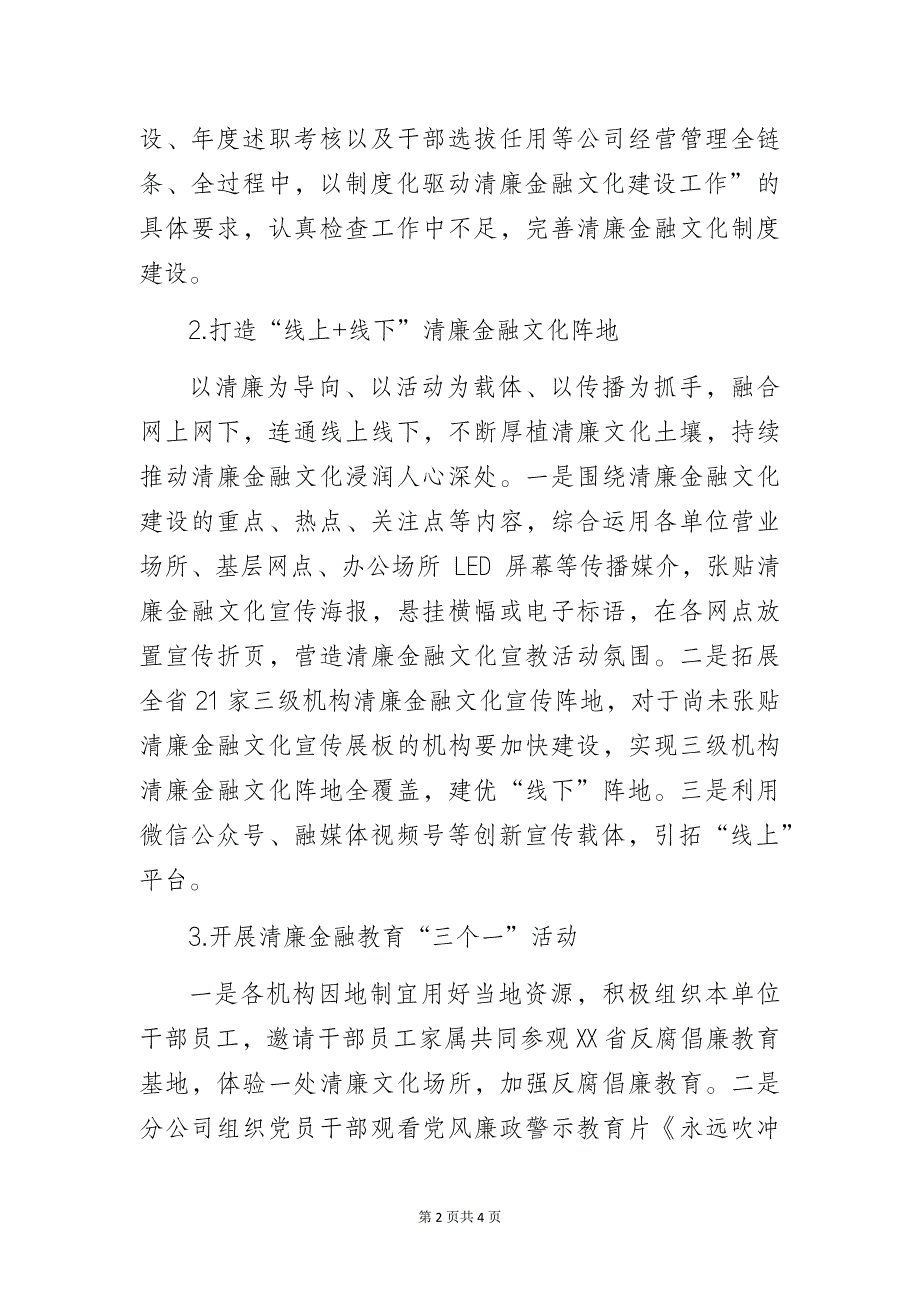 设、年度述职考核以及干部选拔任用等公司经营管理全链
条、全过程中，以制度化驱动清廉金融文化建设工作”的
具体要求，认真检查工作中不足，完善清廉金融文化制度
建设。
2.打造“线上+线下”清廉金融文化阵地
以清廉为导向、以活动为载体、以传播为抓手，融合
网上网下，连通线上线下，不断厚植清廉文化土壤，持续
推动清廉金融文化浸润人心深处。一是围绕清廉金融文化
建设的重点、热点、关注点等内容，综合运用各单位营业
场所、基层网点、办公场所 LED 屏幕等传播媒介，张贴清
廉金融文化宣传海报，悬挂横幅或电子标语，在各网点放
置宣传折页，营造清廉金融文化宣教活动氛围。二是拓展
全省 21 家三级机构清廉金融文化宣传阵地，对于尚未张贴
清廉金融文化宣传展板的机构要加快建设，实现三级机构
清廉金融文化阵地全覆盖，建优“线下”阵地。三是利用
微信公众号、融媒体视频号等创新宣传载体，引拓“线上”
平台。
3.开展清廉金融教育“三个一”活动
一是各机构因地制宜用好当地资源，积极组织本单位
干部员工，邀请干部员工家属共同参观 XX 省反腐倡廉教育
基地，体验一处清廉文化场所，加强反腐倡廉教育。二是
分公司组织党员干部观看党风廉政警示教育片《永远吹冲
第 2 页共 4 页